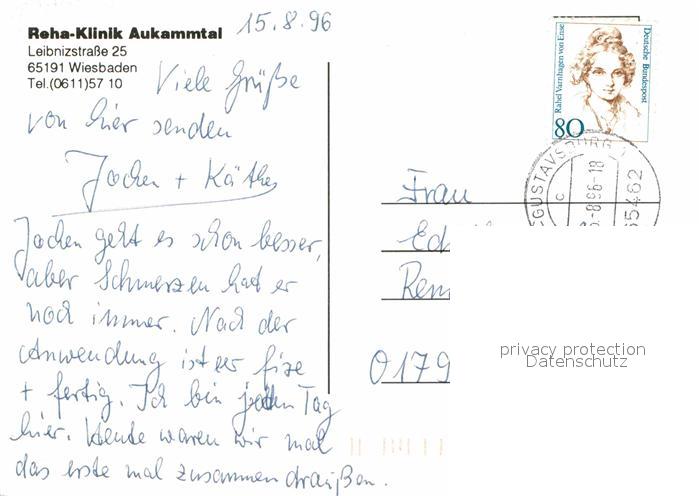 Reha-Klinik Aukammtal
Leibnizstraße 25
65191 Wiesbaden
Tel.(0611)57 10
15.8.96
Viele Grüße
von hier senden
Jochen + Käthe
Jochen geht es schon besser,
aber Schmerzen hat er
noch immer. Nach der
Anwendung ist er fixe
+ fertig. Ich bin jeden Tag
hier. Heute waren wir mal
das erste mal zusammen draußen.
Deutsche Bundespost
Rahel Varnhagen von Ense
80
GUSTAVSBURG
c
.-8.96-18
65462
Frau
Ed
Ren
0179
privacy protection
Datenschutz